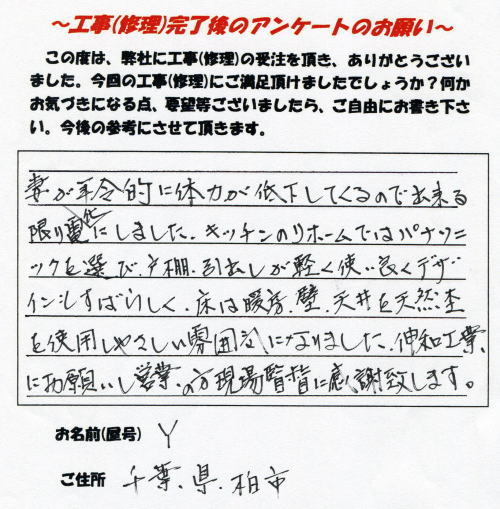 ～工事(修理)完了後のアンケートのお願い～
この度は、弊社に工事(修理)の受注を頂き、ありがとうござい
ました。今回の工事(修理)にご満足頂けましたでしょうか？何か
お気づきになる点、要望等ございましたら、ご自由にお書き下さ
い。今後の参考にさせて頂きます。
妻が年令的に体力が低下してくるので出来る
限り電化にしました。キッチンのリホームではパナソニ
ックを選び、戸棚、引出しが軽く使い良くデザ
インもすばらしく、床は暖房、壁、天井を天然杢
を使用しやさしい雰囲気になりました。伸和工業
にお願いし営業の方現場監督に感謝致します。
お名前(屋号) Y
ご住所 千葉県柏市